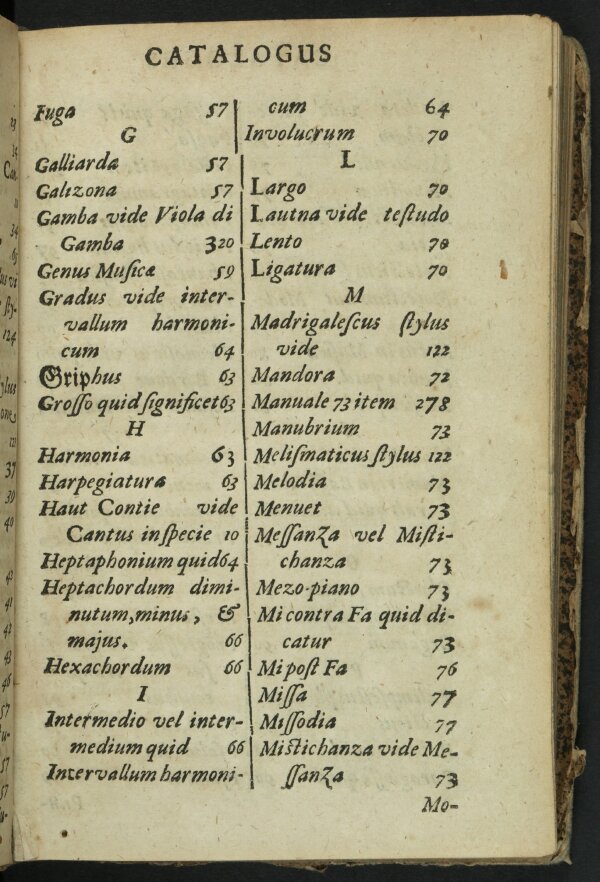 CATALOGUS
Fuga 57
G
Galliarda 57
Galizona 57
Gamba vide Viola di
Gamba 320
Genus Muſicæ 59
Gradus vide inter-
vallum harmoni-
cum 64
Griphus 63
Groſſo quid ſignificet 63
H
Harmonia 63
Harpegiatura 63
Haut Contie vide
Cantus in ſpecie 10
Heptaphonium quid 64
Heptachordum dimi-
nutum, minus, &
majus. 66
Hexachordum 66
I
Intermedio vel inter-
medium quid 66
Intervallum harmoni-
cum 64
Involucrum 70
L
Largo 70
Lautna vide teſtudo
Lento 70
Ligatura 70
M
Madrigaleſcus ſtylus
vide 122
Mandora 72
Manuale 73 item 278
Manubrium 73
Meliſmaticus ſtylus 122
Melodia 73
Menuet 73
Meſſanza vel Miſti-
chanza 73
Mezo-piano 73
Mi contra Fa quid di-
catur 73
Mi poſt Fa 76
Miſſa 77
Miſſodia 77
Miſtichanza vide Me-
ſſanza 73
Mo-